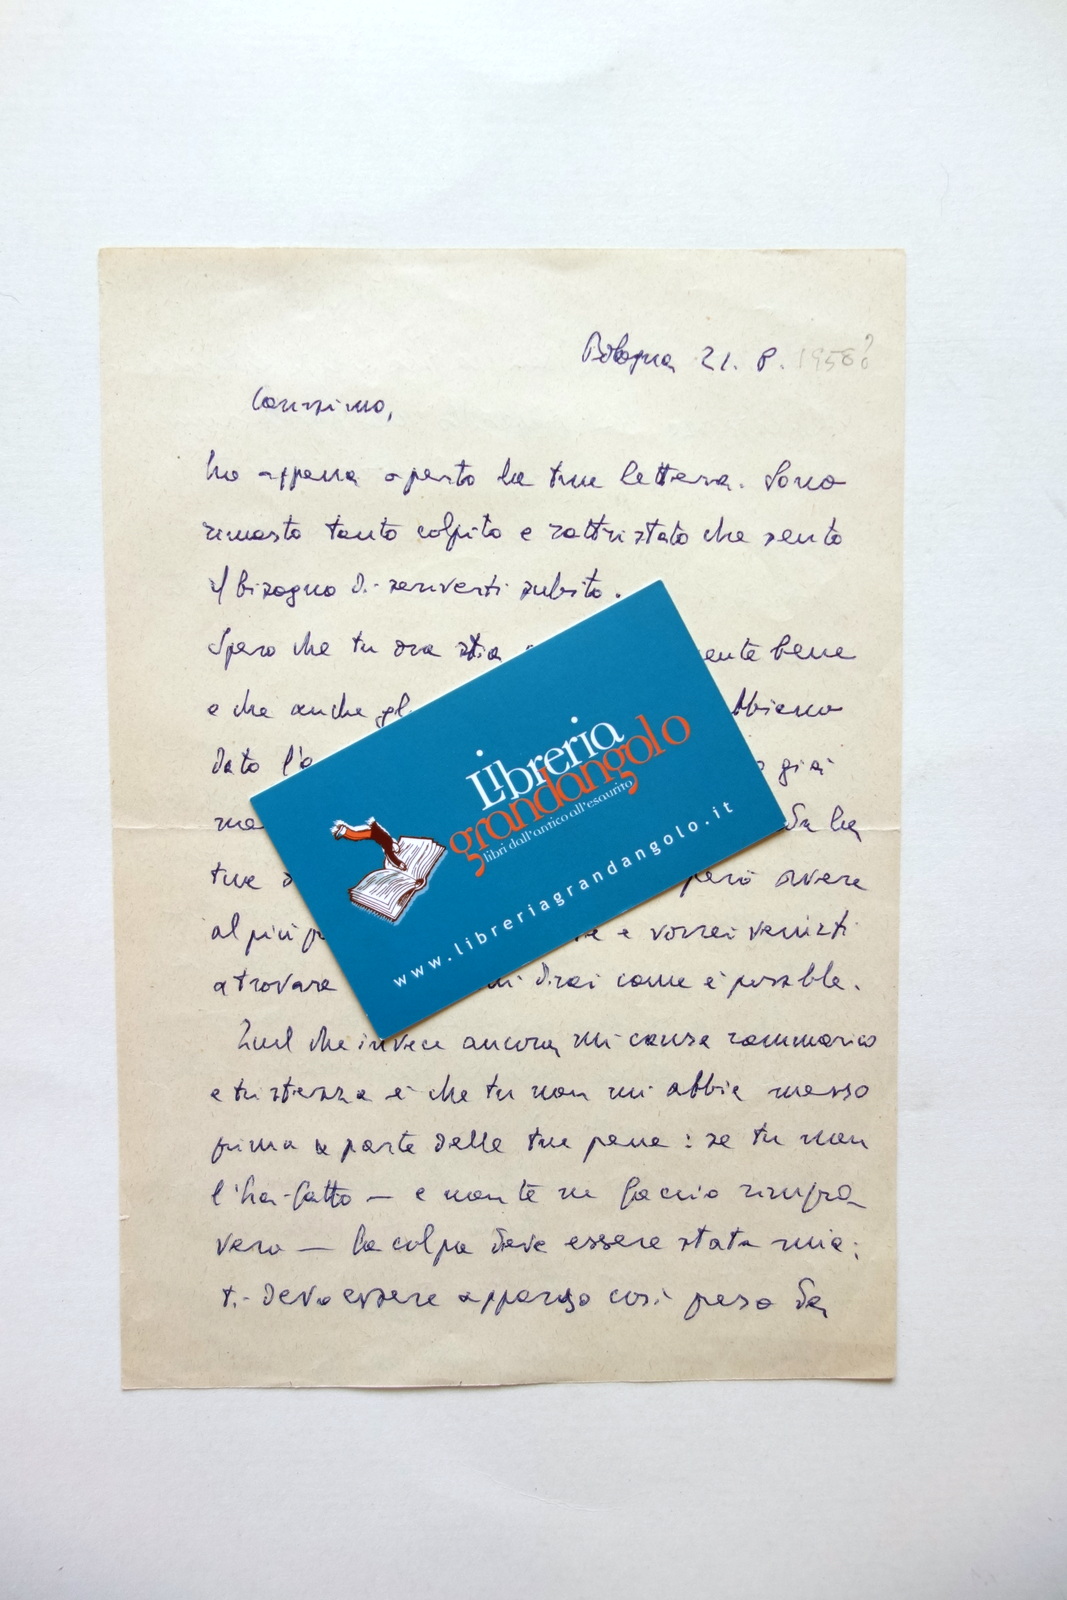 Bologna 21. 8. 1956?
Carissimo,
ho appena aperto la tua lettera. Sono
rimasto tanto colpito e rattristato che sento
il bisogno di scriverti subito.
Spero che tu ora stia ente bene
e che anche gl bbiano
dato l'o già
ma Da la
tue però avere
al più p e vorrei venirti
a trovare dirai come è possibile.
Quel che invece ancora mi causa rammarico
e tristezza è che tu non mi abbia messo
prima a parte delle tue pene: se tu non
l'hai fatto — e non te ne faccio rimpro
vero — la colpa deve essere stata mia:
ti devo essere apparso così preso da
Libreria
grandangolo
libri dall'antico all'esaurito
www.libreriagrandangolo.it